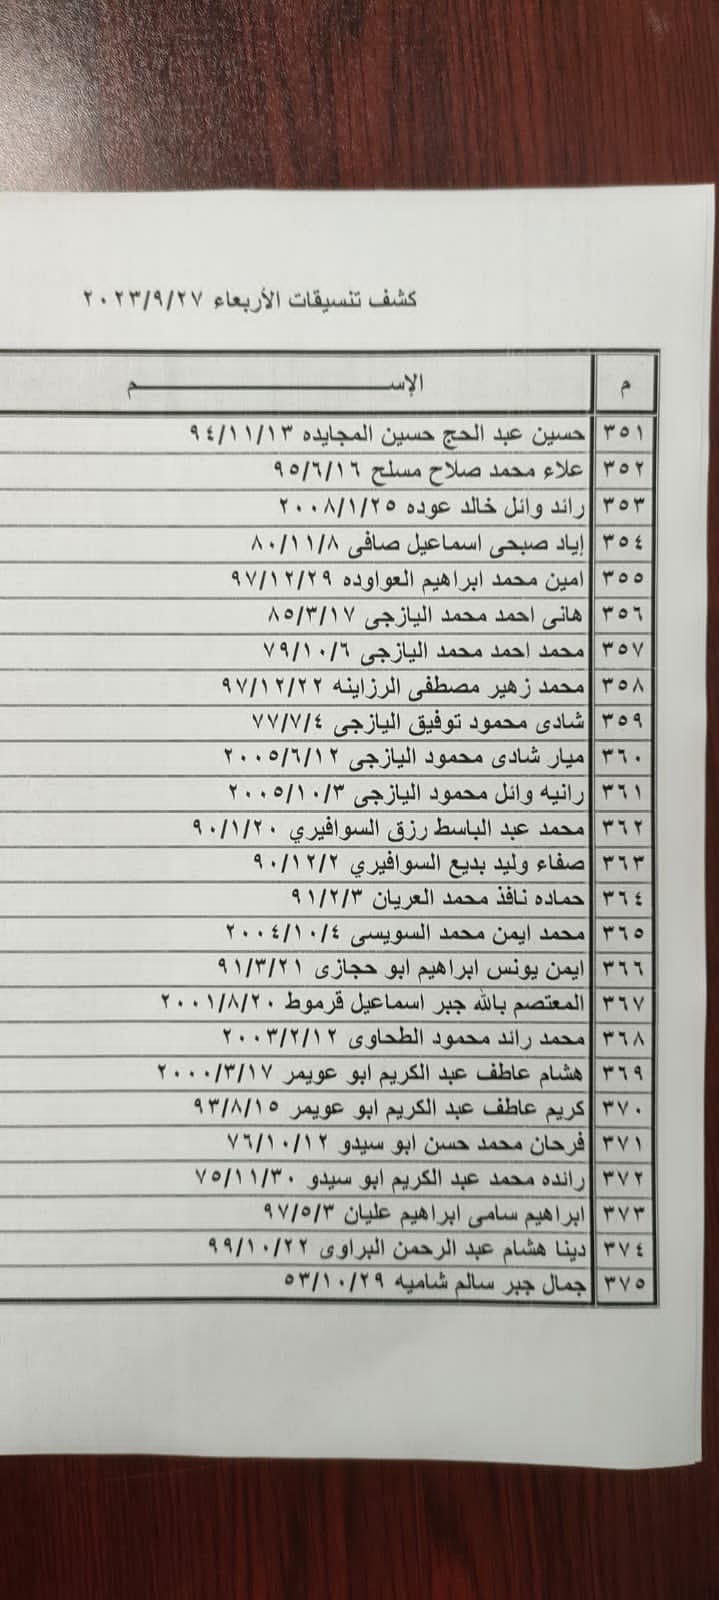 كشف تنسيقات الأربعاء ٢٠٢٣/٩/٢٧
م الإســــــــــــــــــــــــــــم
٣٥١ حسين عبد الحج حسين المجايده ٩٤/١١/١٣
٣٥٢ علاء محمد صلاح مسلح ٩٥/٦/١٦
٣٥٣ رائد وائل خالد عوده ٢٠٠٨/١/٢٥
٣٥٤ إياد صبحى اسماعيل صافى ٨٠/١١/٨
٣٥٥ امين محمد ابراهيم العواوده ٩٧/١٢/٢٩
٣٥٦ هانى احمد محمد اليازجى ٨٥/٣/١٧
٣٥٧ محمد احمد محمد اليازجى ٧٩/١٠/٦
٣٥٨ محمد زهير مصطفى الرزاينه ٩٧/١٢/٢٢
٣٥٩ شادى محمود توفيق اليازجى ٧٧/٧/٤
٣٦٠ ميار شادى محمود اليازجى ٢٠٠٥/٦/١٢
٣٦١ رانيه وائل محمود اليازجى ٢٠٠٥/١٠/٣
٣٦٢ محمد عبد الباسط رزق السوافيري ٩٠/١/٢٠
٣٦٣ صفاء وليد بديع السوافيري ٩٠/١٢/٢
٣٦٤ حماده نافذ محمد العريان ٩١/٢/٣
٣٦٥ محمد ايمن محمد السويسى ٢٠٠٤/١٠/٤
٣٦٦ ايمن يونس ابراهيم ابو حجازى ٩١/٣/٢١
٣٦٧ المعتصم بالله جبر اسماعيل قرموط ٢٠٠١/٨/٢٠
٣٦٨ محمد رائد محمود الطحاوى ٢٠٠٣/٢/١٢
٣٦٩ هشام عاطف عبد الكريم ابو عويمر ٢٠٠٠/٣/١٧
٣٧٠ كريم عاطف عبد الكريم ابو عويمر ٩٣/٨/١٥
٣٧١ فرحان محمد حسن ابو سيدو ٧٦/١٠/١٢
٣٧٢ رائده محمد عبد الكريم ابو سيدو ٧٥/١١/٣٠
٣٧٣ ابراهيم سامى ابراهيم عليان ٩٧/٥/٣
٣٧٤ دينا هشام عبد الرحمن البراوى ٩٩/١٠/٢٢
٣٧٥ جمال جبر سالم شاميه ٥٣/١٠/٢٩